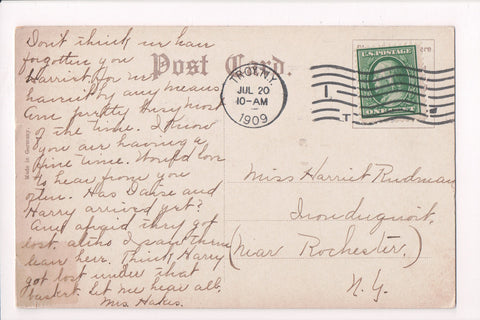 Don't think we have
forgotten you
Harriet for we
haven't by any means
Am pretty busy most
of the time. I know
you are having a
fine time. Would love
to hear from you
often. Has Daise and
Harry arrived yet?
Am afraid they got
lost, altho I saw them
leave here. Think Harry
got lost under that
basket. Let me hear all.
Mrs. Hakes.
Made in Germany.
Post Card.
TROY, N.Y.
JUL 20
10-AM
1909
U.S. POSTAGE
Miss Harriet Rudman
Irondequoit,
(Near Rochester.)
N.Y.